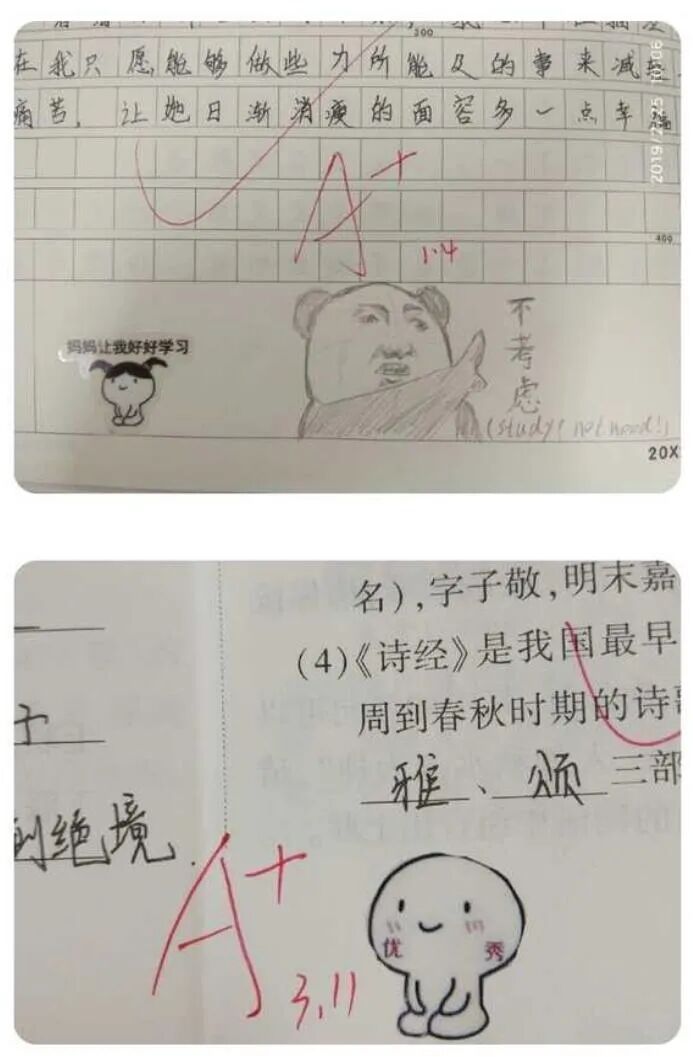 300
在我只愿能够做些力所能及的事来减轻
痛苦，让她日渐消瘦的面容多一点幸福
2019/
10:06
A+
1.4
400
妈妈让我好好学习
不考虑
(study! not need!)
20X
名），字子敬，明末嘉
(4)《诗经》是我国最早
周到春秋时期的诗歌
雅、颂三部
于
到绝境
A+
3,11
优 秀